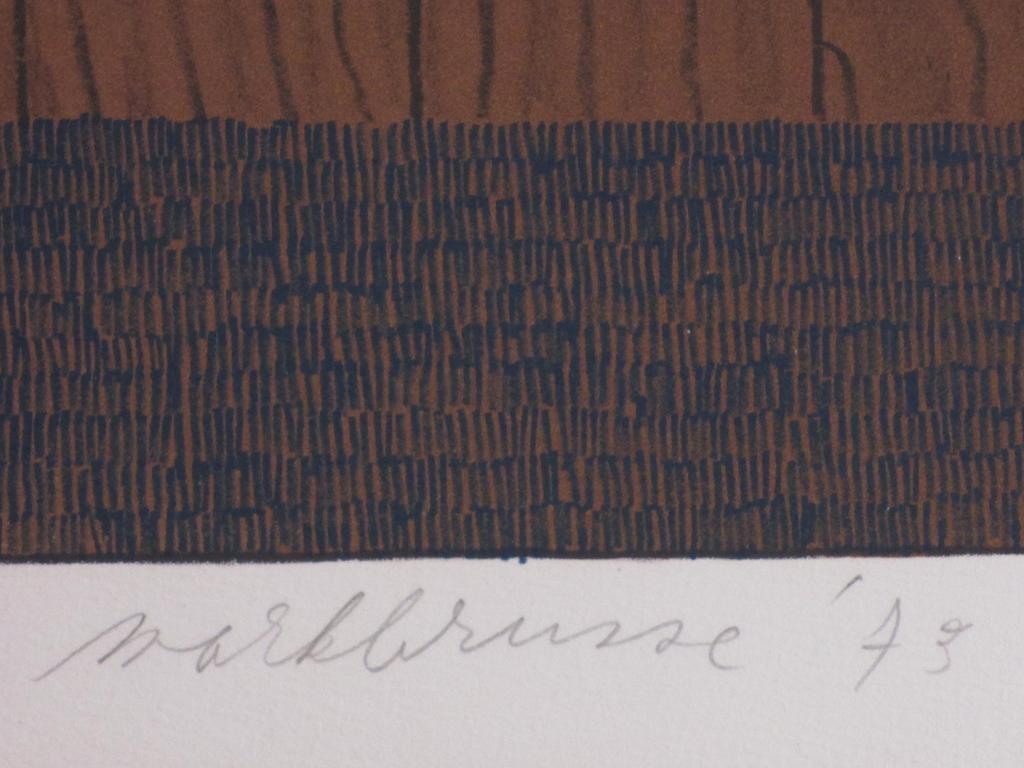 markbrusse '73